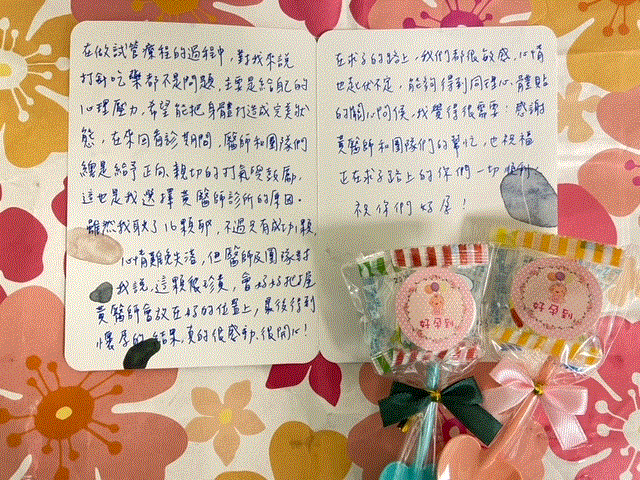 在做試管療程的過程中,對我來說
打針吃藥都不是問題,主要是給自己的
心理壓力,希望能把身體打造成完美狀
態,在來回看診期間,醫師和團隊們
總是給予正向、親切的打氣與鼓勵,
這也是我選擇黃醫師診所的原因。
雖然我取了16顆卵,不過只有成功1顆,
心情難免失落,但醫師及團隊對
我說,這顆很珍貴,會好好把握
黃醫師會放在好的位置上,最後得到
懷孕的結果,真的很感動,很開心!
在求子的路上,我們都很敏感,心情
也起伏不定,能夠得到同理心、體貼
的關心問侯,我覺得很需要!感謝
黃醫師和團隊們的幫忙,也祝福
正在求子路上的你們一切順利
祝你們好孕!
好孕到
好孕到